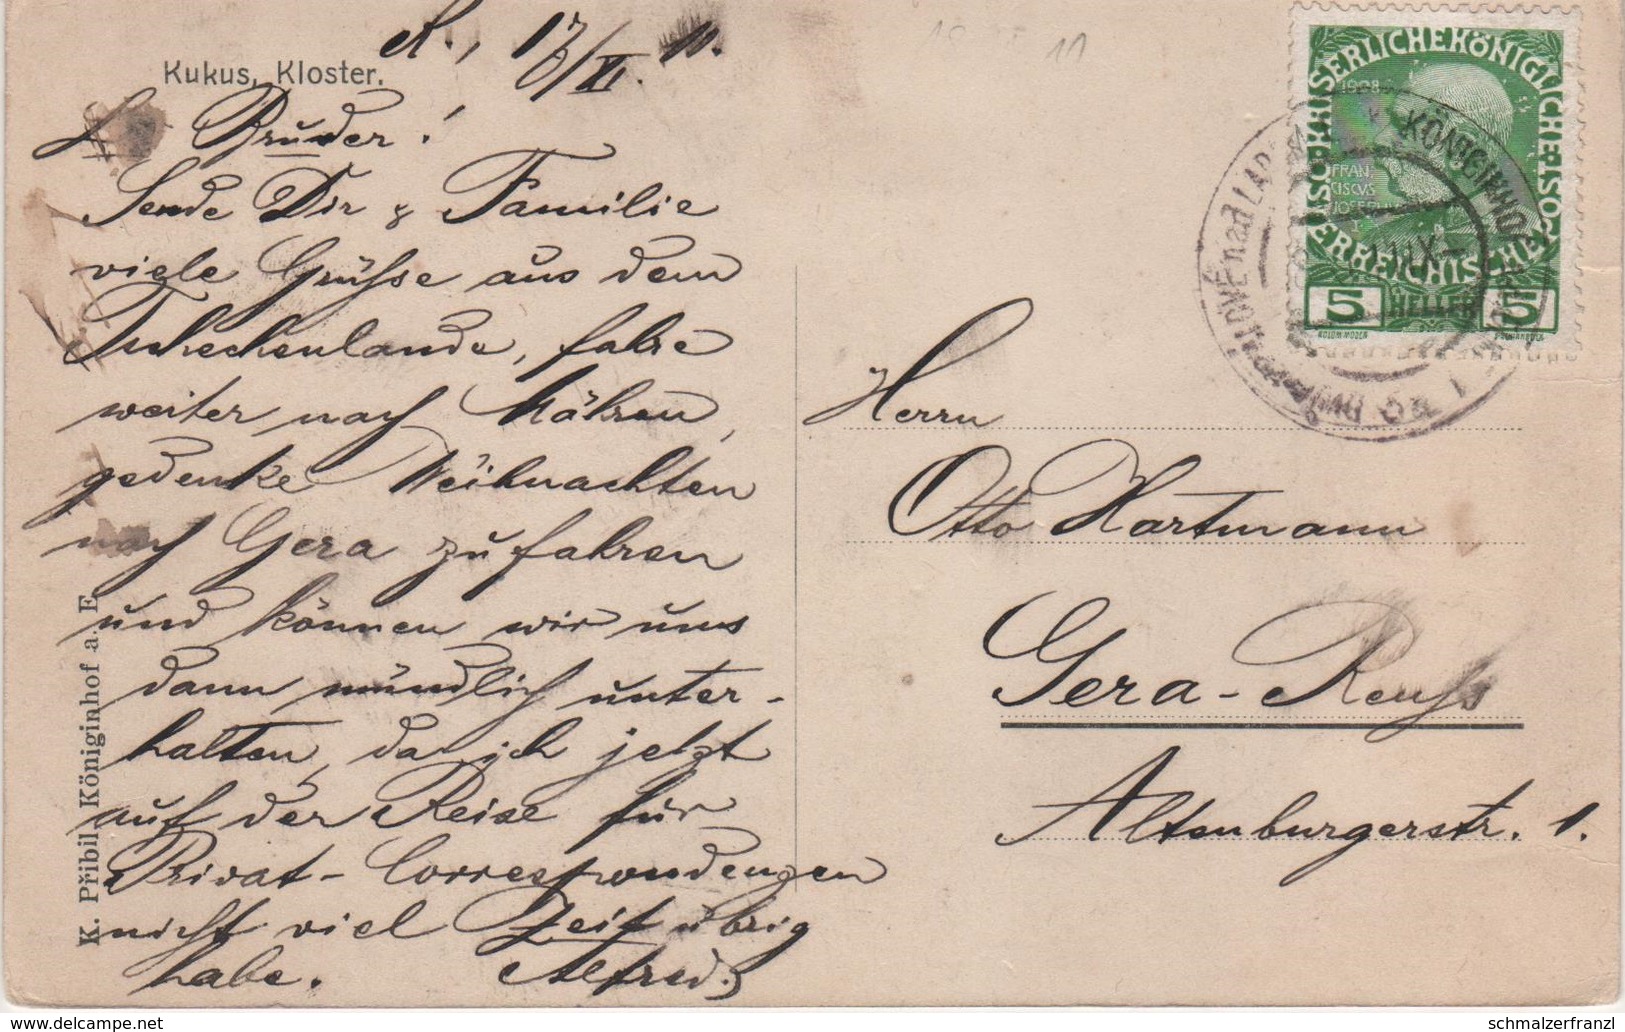 Kukus, Kloster.
17/XI. 11.
L. Bruder!
Sende Dir & Familie
viele Grüsse aus dem
Tschechenlande, fahre
weiter nach Mähren,
gedenke Weihnachten
nach Gera zu fahren
und können wir uns
dann mündlich unter-
halten, da ich jetzt
auf der Reise für
Privat-Correspondenzen
nicht viel Zeit übrig
habe. Alfred.
K. Přibil Königinhof a. E
KAISERLICHE KÖNIGLICHE
ÖSTERREICHISCHE
1908
FRAN
CISCVS
5 HELLER 5
KÖNIGINHOF
Herrn
Otto Hartmann
Gera-Reuss
Altenburgerstr. 1.
© www.delcampe.net
schmalzerfranzl